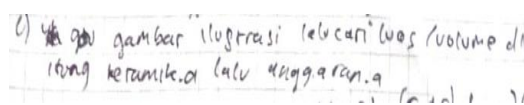 c) gambar ilustrasi lalu cari luas /volume di
itung keramik.a lalu anggaran.a